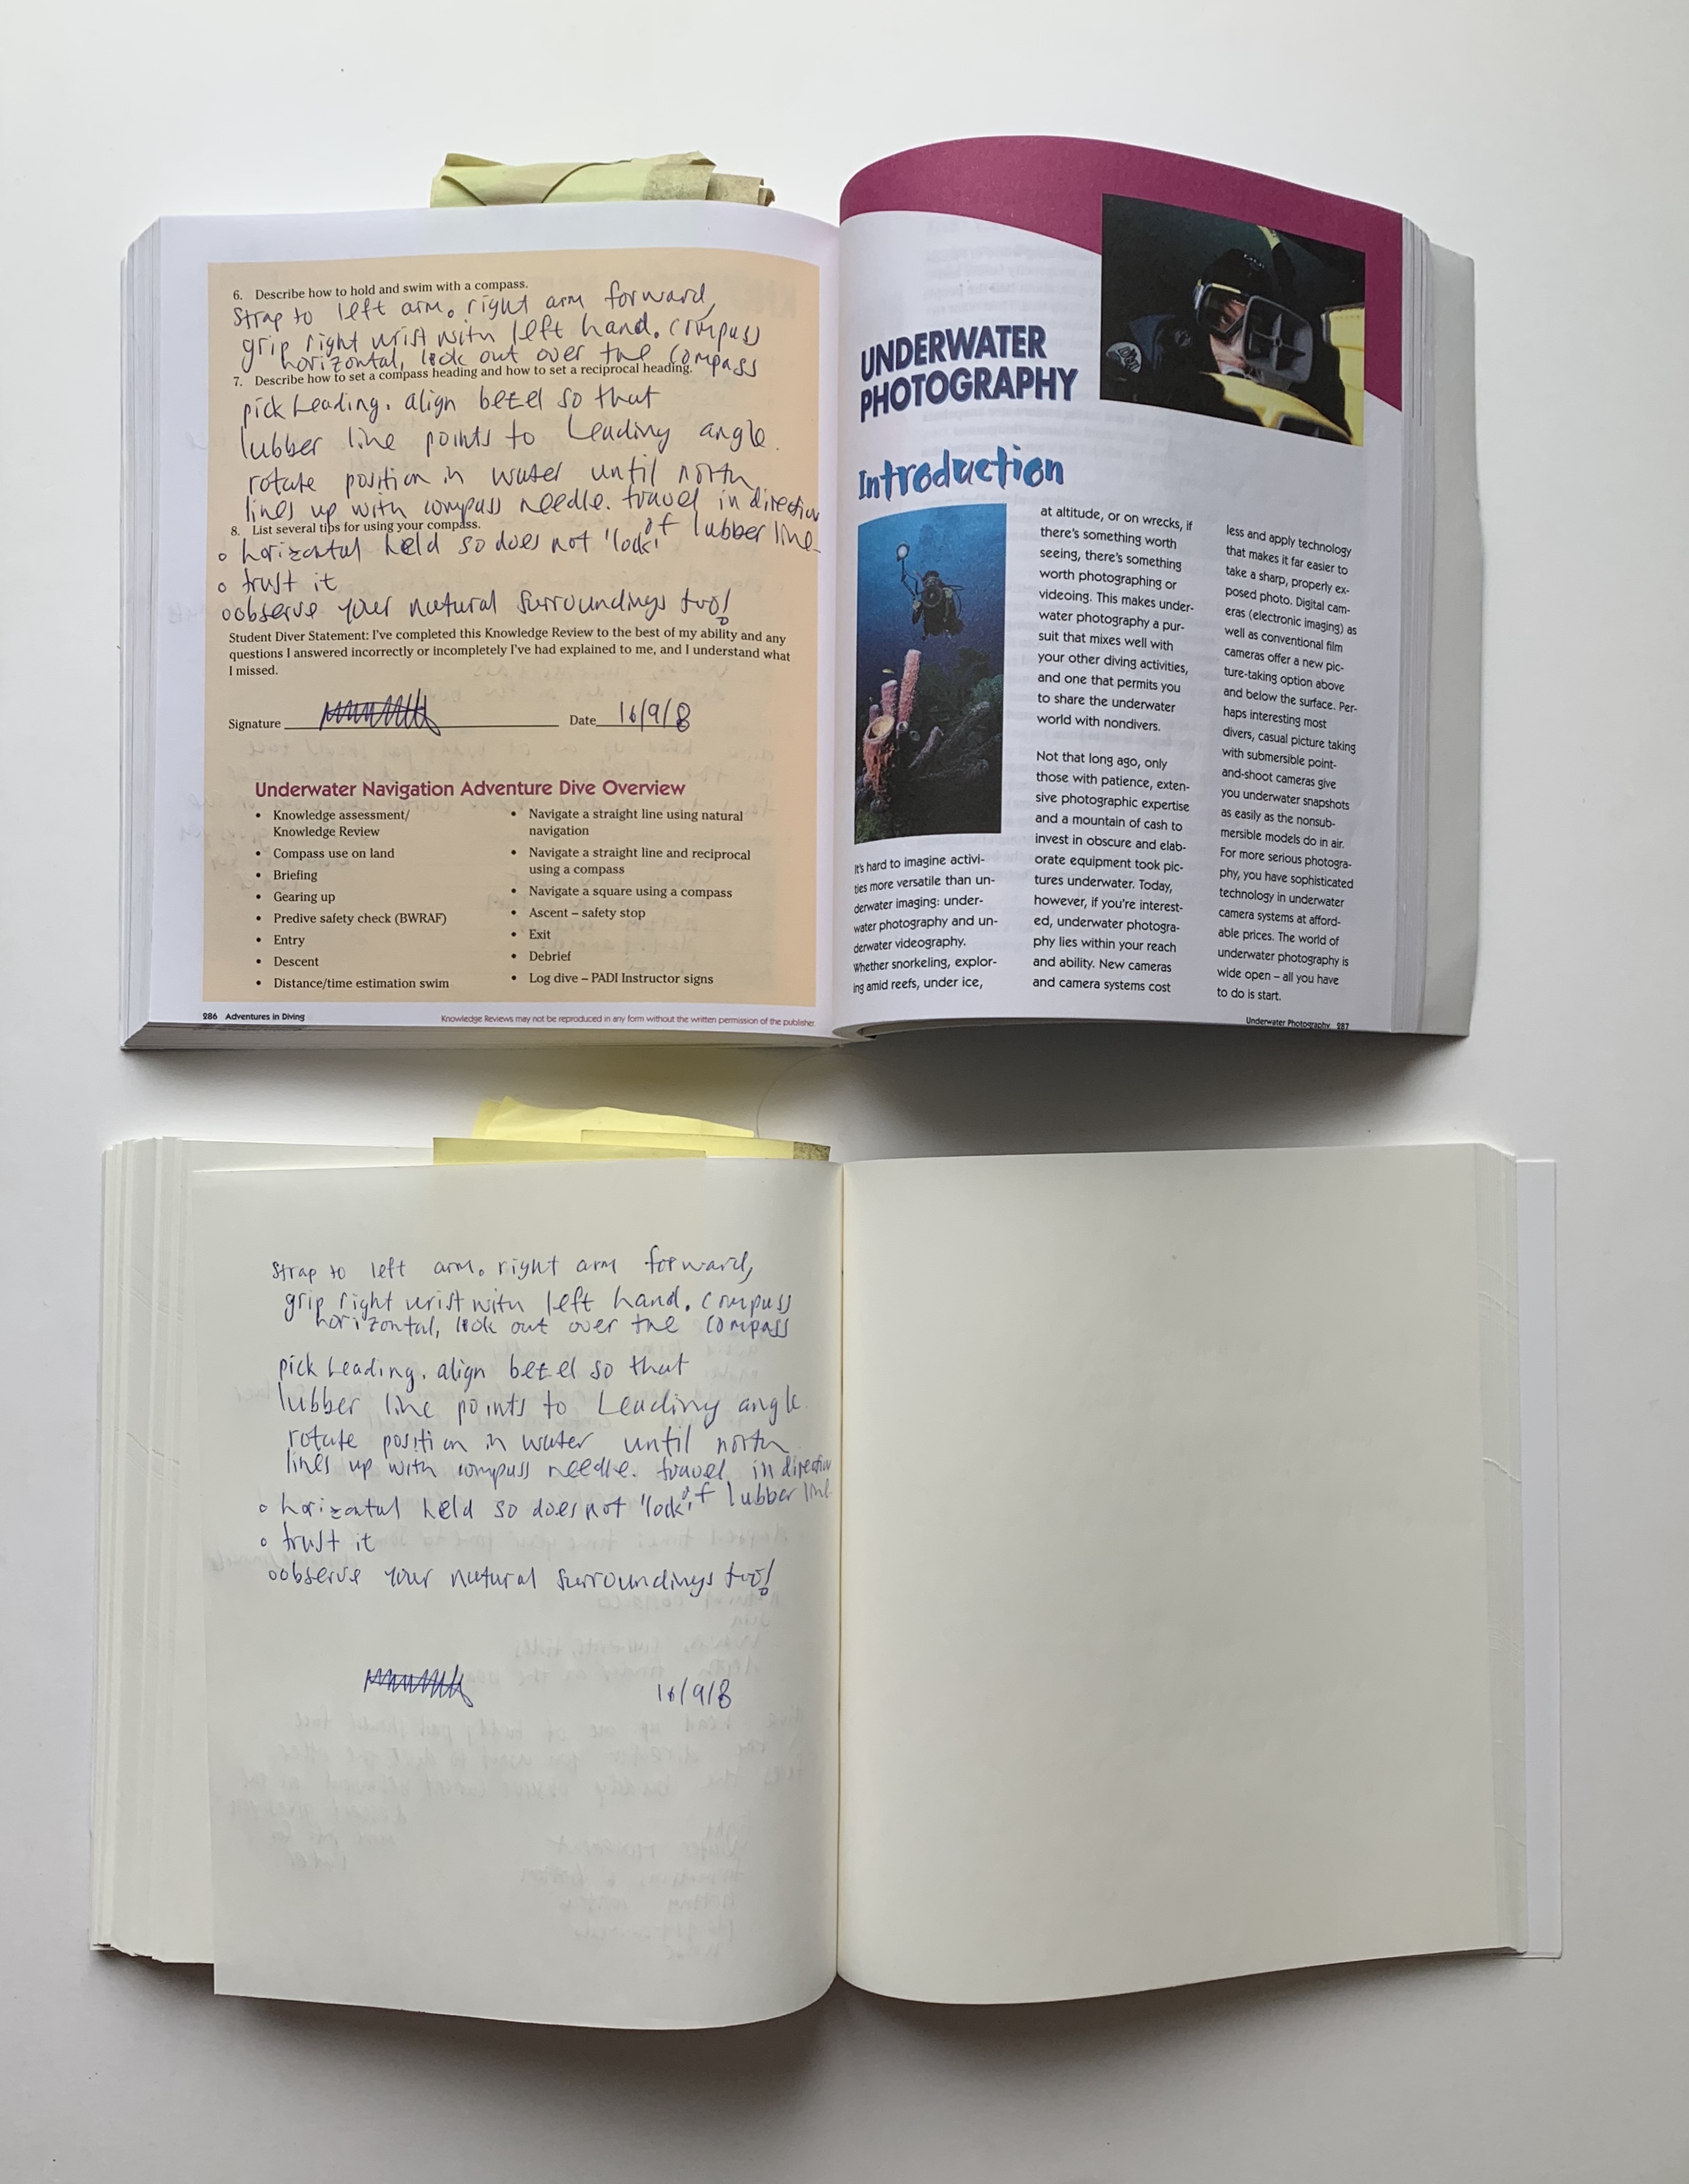 6. Describe how to hold and swim with a compass.
Strap to left arm. right arm forward,
grip right wrist with left hand. compass
horizontal, look out over the compass
7. Describe how to set a compass heading and how to set a reciprocal heading.
pick heading. align bezel so that
lubber line points to heading angle.
rotate position in water until north
lines up with compass needle. travel in direction
of lubber line
8. List several tips for using your compass.
o horizontal held so does not 'lock'
o trust it
o observe your natural surroundings too!
Student Diver Statement: I've completed this Knowledge Review to the best of my ability and any
questions I answered incorrectly or incompletely I've had explained to me, and I understand what
I missed.
Signature
Date 16/9/8
Underwater Navigation Adventure Dive Overview
• Knowledge assessment/
Knowledge Review
• Compass use on land
• Briefing
• Gearing up
• Predive safety check (BWRAF)
• Entry
• Descent
• Distance/time estimation swim
• Navigate a straight line using natural
navigation
• Navigate a straight line and reciprocal
using a compass
• Navigate a square using a compass
• Ascent – safety stop
• Exit
• Debrief
• Log dive – PADI Instructor signs
286 Adventures in Diving
Knowledge Reviews may not be reproduced in any form without the written permission of the publisher.
UNDERWATER
PHOTOGRAPHY
Introduction
It's hard to imagine activi-
ties more versatile than un-
derwater imaging: under-
water photography and un-
derwater videography.
Whether snorkeling, explor-
ing amid reefs, under ice,
at altitude, or on wrecks, if
there's something worth
seeing, there's something
worth photographing or
videoing. This makes under-
water photography a pur-
suit that mixes well with
your other diving activities,
and one that permits you
to share the underwater
world with nondivers.
Not that long ago, only
those with patience, exten-
sive photographic expertise
and a mountain of cash to
invest in obscure and elab-
orate equipment took pic-
tures underwater. Today,
however, if you're interest-
ed, underwater photogra-
phy lies within your reach
and ability. New cameras
and camera systems cost
less and apply technology
that makes it far easier to
take a sharp, properly ex-
posed photo. Digital cam-
eras (electronic imaging) as
well as conventional film
cameras offer a new pic-
ture-taking option above
and below the surface. Per-
haps interesting most
divers, casual picture taking
with submersible point-
and-shoot cameras give
you underwater snapshots
as easily as the nonsub-
mersible models do in air.
For more serious photogra-
phy, you have sophisticated
technology in underwater
camera systems at afford-
able prices. The world of
underwater photography is
wide open – all you have
to do is start.
Underwater Photography 287
Strap to left arm. right arm forward,
grip right wrist with left hand. compass
horizontal, look out over the compass
pick heading. align bezel so that
lubber line points to heading angle.
rotate position in water until north
lines up with compass needle. travel in direction
of lubber line
o horizontal held so does not 'lock'
o trust it
o observe your natural surroundings too!
16/9/8